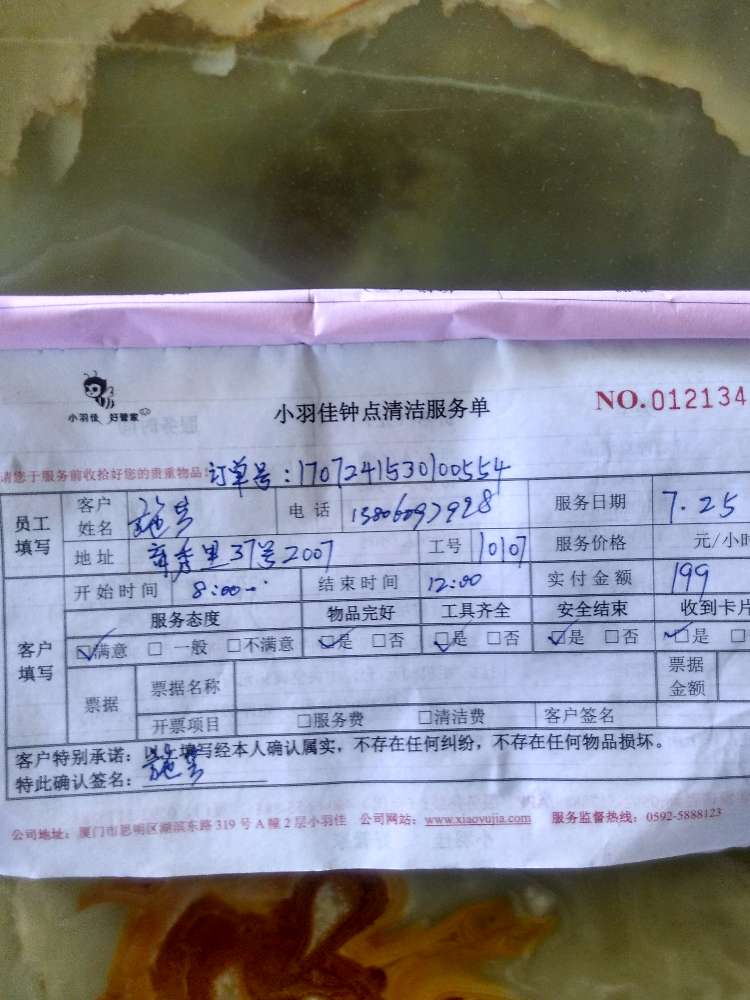 小羽佳 好管家
小羽佳钟点清洁服务单
NO.012134
请您于服务前收拾好您的贵重物品!
订单号:1707241530100554
员工填写 客户姓名 施 电话 服务日期 7.25
地址 37号2007 工号 10107 服务价格 元/小时
开始时间 8:00 结束时间 12:00 实付金额 199
服务态度 物品完好 工具齐全 安全结束 收到卡片
客户填写 ☑满意 □一般 □不满意 ☑是 □否 ☑是 □否 ☑是 □否 ☑是 □
票据 票据名称 票据金额
开票项目 □服务费 □清洁费 客户签名
客户特别承诺:以上填写经本人确认属实,不存在任何纠纷,不存在任何物品损坏。
特此确认签名:施
公司地址:厦门市思明区湖滨东路319号A幢2层小羽佳 公司网站:www.xiaoyujia.com 服务监督热线:0592-5888123